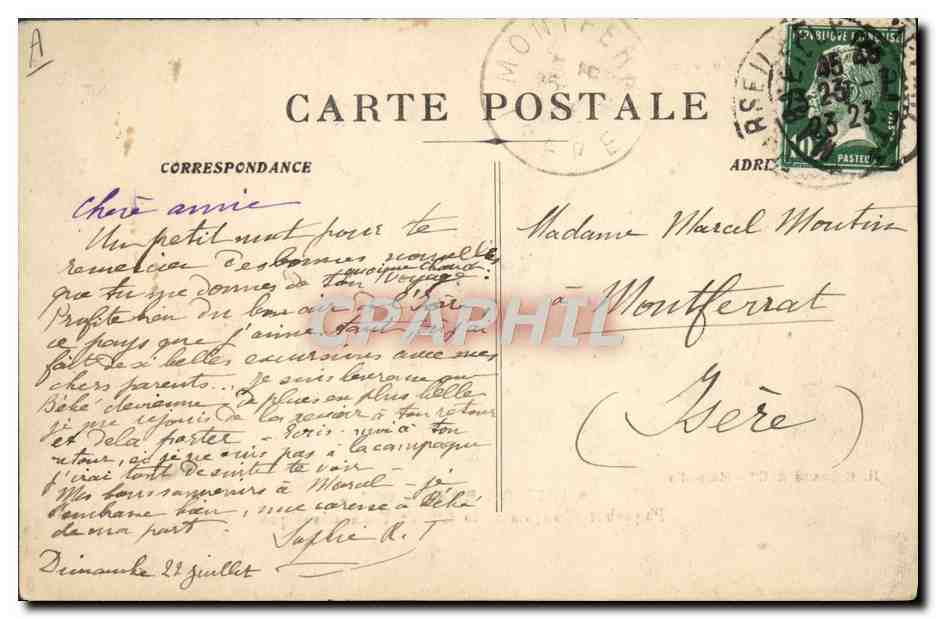 A
CARTE POSTALE
CORRESPONDANCE
Chère amie
Un petit mot pour te
remercier des bonnes nouvelles
que tu me donnes de ton voyage
quoique chaud.
Profite bien du bon air de l'Isère
ce pays que j'aime tant où j'ai
fait de si belles excursions avec mes
chers parents... Je suis heureuse que
Bébé devienne de plus en plus belle
je me réjouis de la revoir à ton retour
et de la porter - Ecris-moi à ton
retour, si je ne suis pas à la campagne
j'irai tout de suite te voir -
Mes bons souvenirs à Marcel - je
t'embrasse bien, une caresse à Bébé
de ma part.
Sophie R. T
Dimanche 22 juillet
ADR
Madame Marcel Moutin
à Montferrat
(Isère)
MONTFERR
REPUBLIQUE FRANÇAISE
10
PASTEUR
POSTES
23 23
CPAPHIL